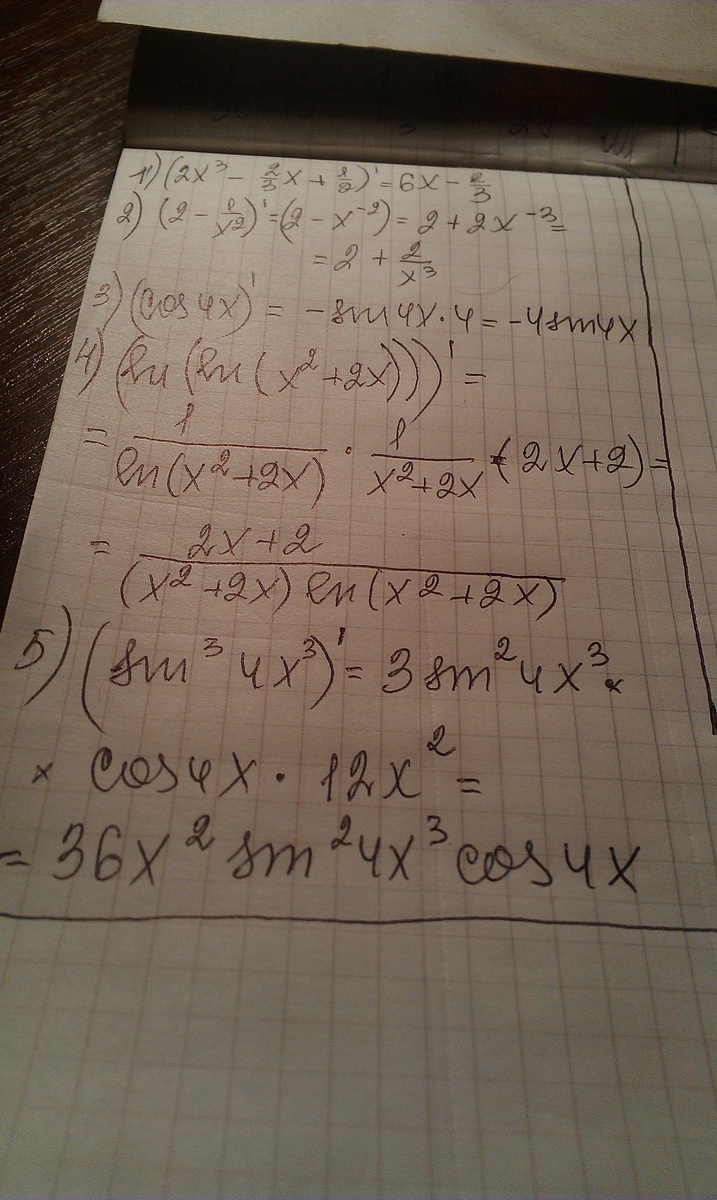 1) (2x³ - 2/3 x + 1/2)' = 6x - 2/3
2) (2 - 1/x²)' = (2 - x⁻²) = 2 + 2x⁻³ =
= 2 + 2/x³
3) (cos4x)' = -sin4x·4 = -4sin4x
4) (ln(ln(x²+2x)))' =
= 1/ln(x²+2x) · 1/x²+2x · (2x+2) =
= 2x+2/(x²+2x) ln(x²+2x)
5) (sin³ 4x³)' = 3 sin² 4x³ ×
× cos4x · 12x² =
= 36x² sin² 4x³ cos 4x